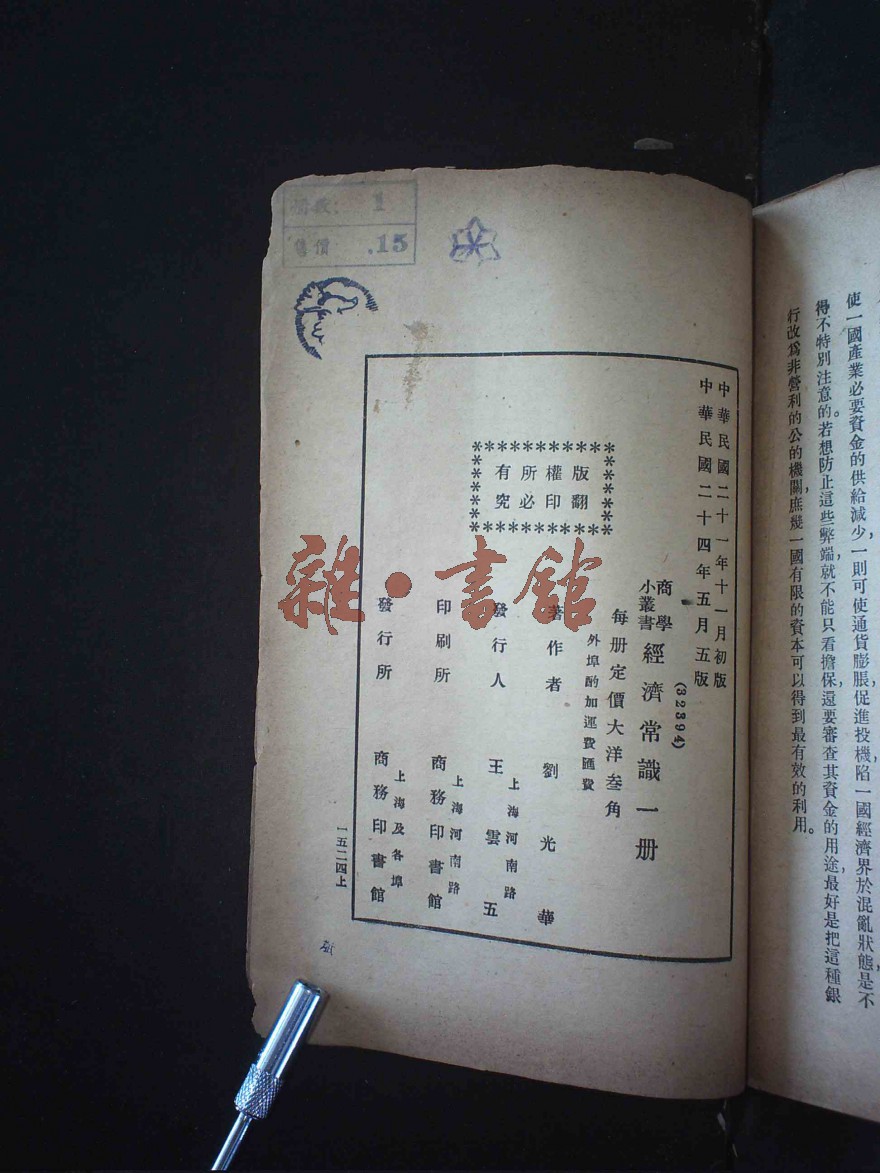 使一國產業必要資金的供給減少，一則可使通貨膨脹，促進投機，陷一國經濟界於混亂狀態，是不
得不特別注意的。若想防止這些弊端，就不能只看擔保，還要審查其資金的用途，最好是把這種銀
行改爲非營利的公的機關，庶幾一國有限的資本可以得到最有效的利用。
中華民國二十一年十一月初版
中華民國二十四年五月五版
(32394)
商學
小叢書
經濟常識一册
每册定價大洋叁角
外埠酌加運費匯費
版權所有
翻印必究
著作者 劉光華
發行人 王雲五
上海河南路
印刷所 商務印書館
上海河南路
發行所 商務印書館
上海及各埠
一五二四上
册數： 1
售價 .15
雜·書館